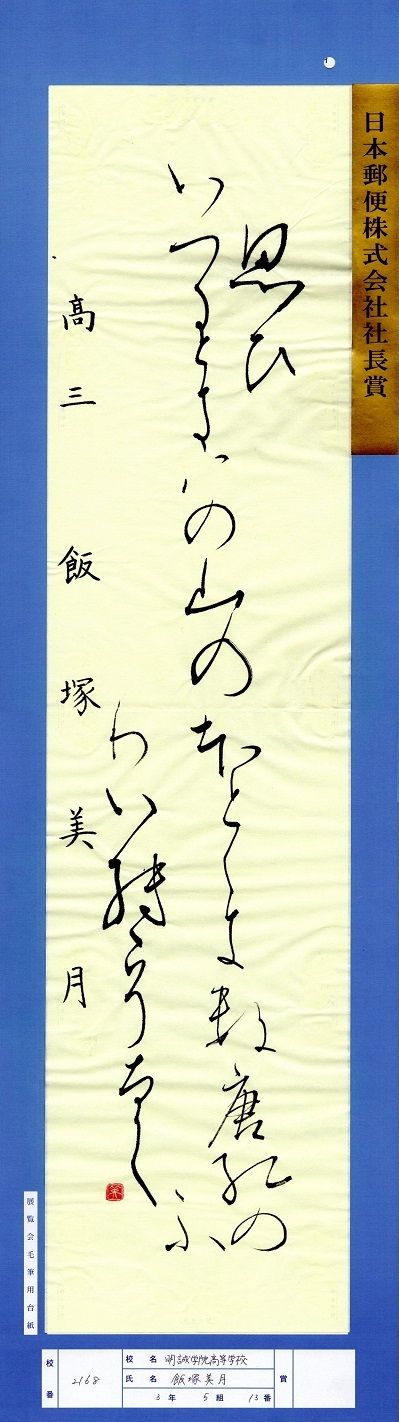 日本郵便株式会社社長賞
思ひ
いつるときはの山のほとゝき数唐紅の
ふ
りいてゝそなく
高三 飯塚美月
展覧会毛筆用台紙
校番 2168
校名 明誠学院高等学校
氏名 飯塚美月
3年 5組 13番
賞